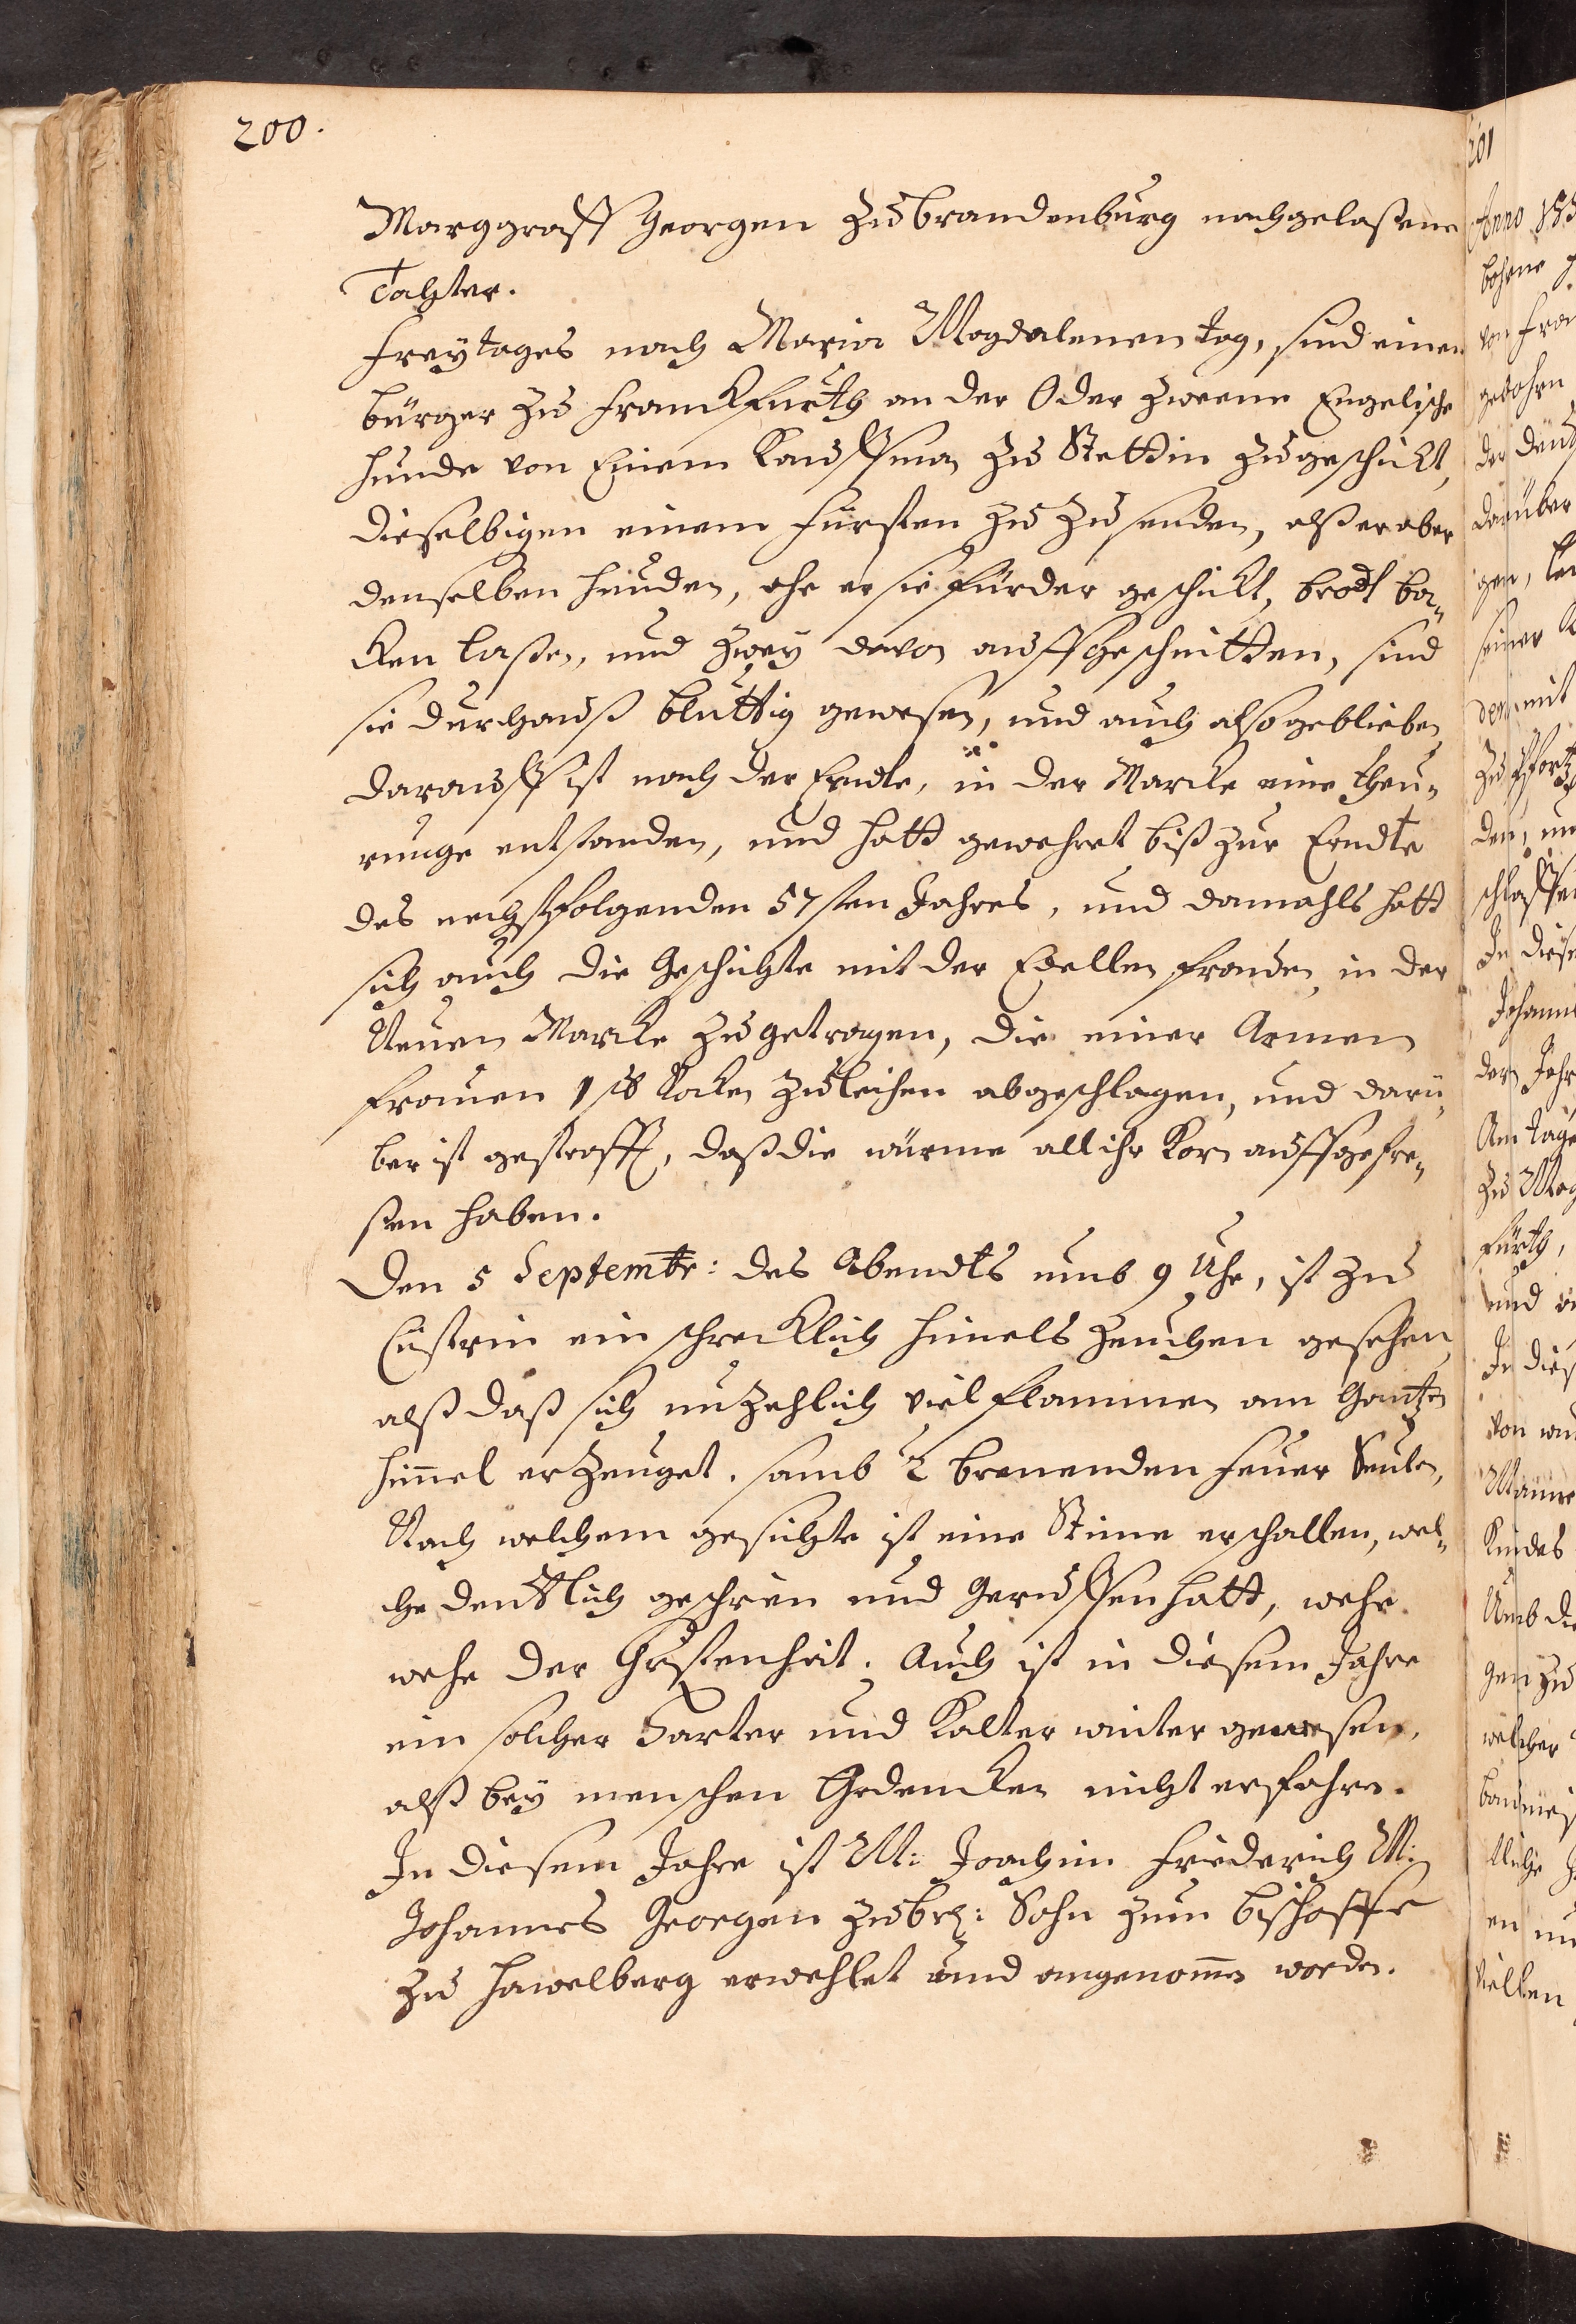 200.
Marggraff Georgen zu Brandenburg nachgelaßene
Tachter.
Freytages nach Maria Magdalenen tag, sind einem
bürger zu Franckfurth an der Oder zweene Engelische
hunde von Einem Kauffman zu Stettin zugeschickt,
dieselbigen einem Fürsten zu zu senden, alß er aber
denselben hunden, ehe er sie fürder geschickt, brodt ba„
cken laßen, und zwey davon auffgeschnitten, sind
sie durchauß bluttig gewesen, und auch also geblieben
darauff ist nach der Erndte, in der Marcke eine theu„
runge entstanden, und hatt gewehret biß zur Erndte
des nechstfolgenden 57sten Jahres, und damahls hatt
sich auch die Geschichte mit der Edellen frauden, in der
Neuen Marcke zugetragen, die einer Armen
frauen 1 Rocken zuleihen abgeschlagen, und darü„
ber ist gestrafft, daß die würme all ihr Korn auffgefre„
ßen haben.
Den 5 Septembr: des Abendts umb 9 Uhr, ist zu
Cüstrin ein schrecklich himels zeuchen gesehen,
alß daß sich unzehlich viel flammen am Gantzen
himmel erzeuget. samb 2 brenenden feuer Seulen,
Nach welchem gesichte ist eine Stime erschallen, wel„
che deuttlich geschrien und Geruffen hatt, wehe
wehe der Christenheit. Auch ist in diesem Jahre
ein solcher Harter und Kalter winter gewesen,
alß bey menschen Gedencken nicht erfahren.
In diesem Jahre ist M: Joachim Friederich M:
Johannes Georgen zu br: Sohn zum bischoffe
zu Hawelberg erwehlet und angenommen worden.
201
Anno